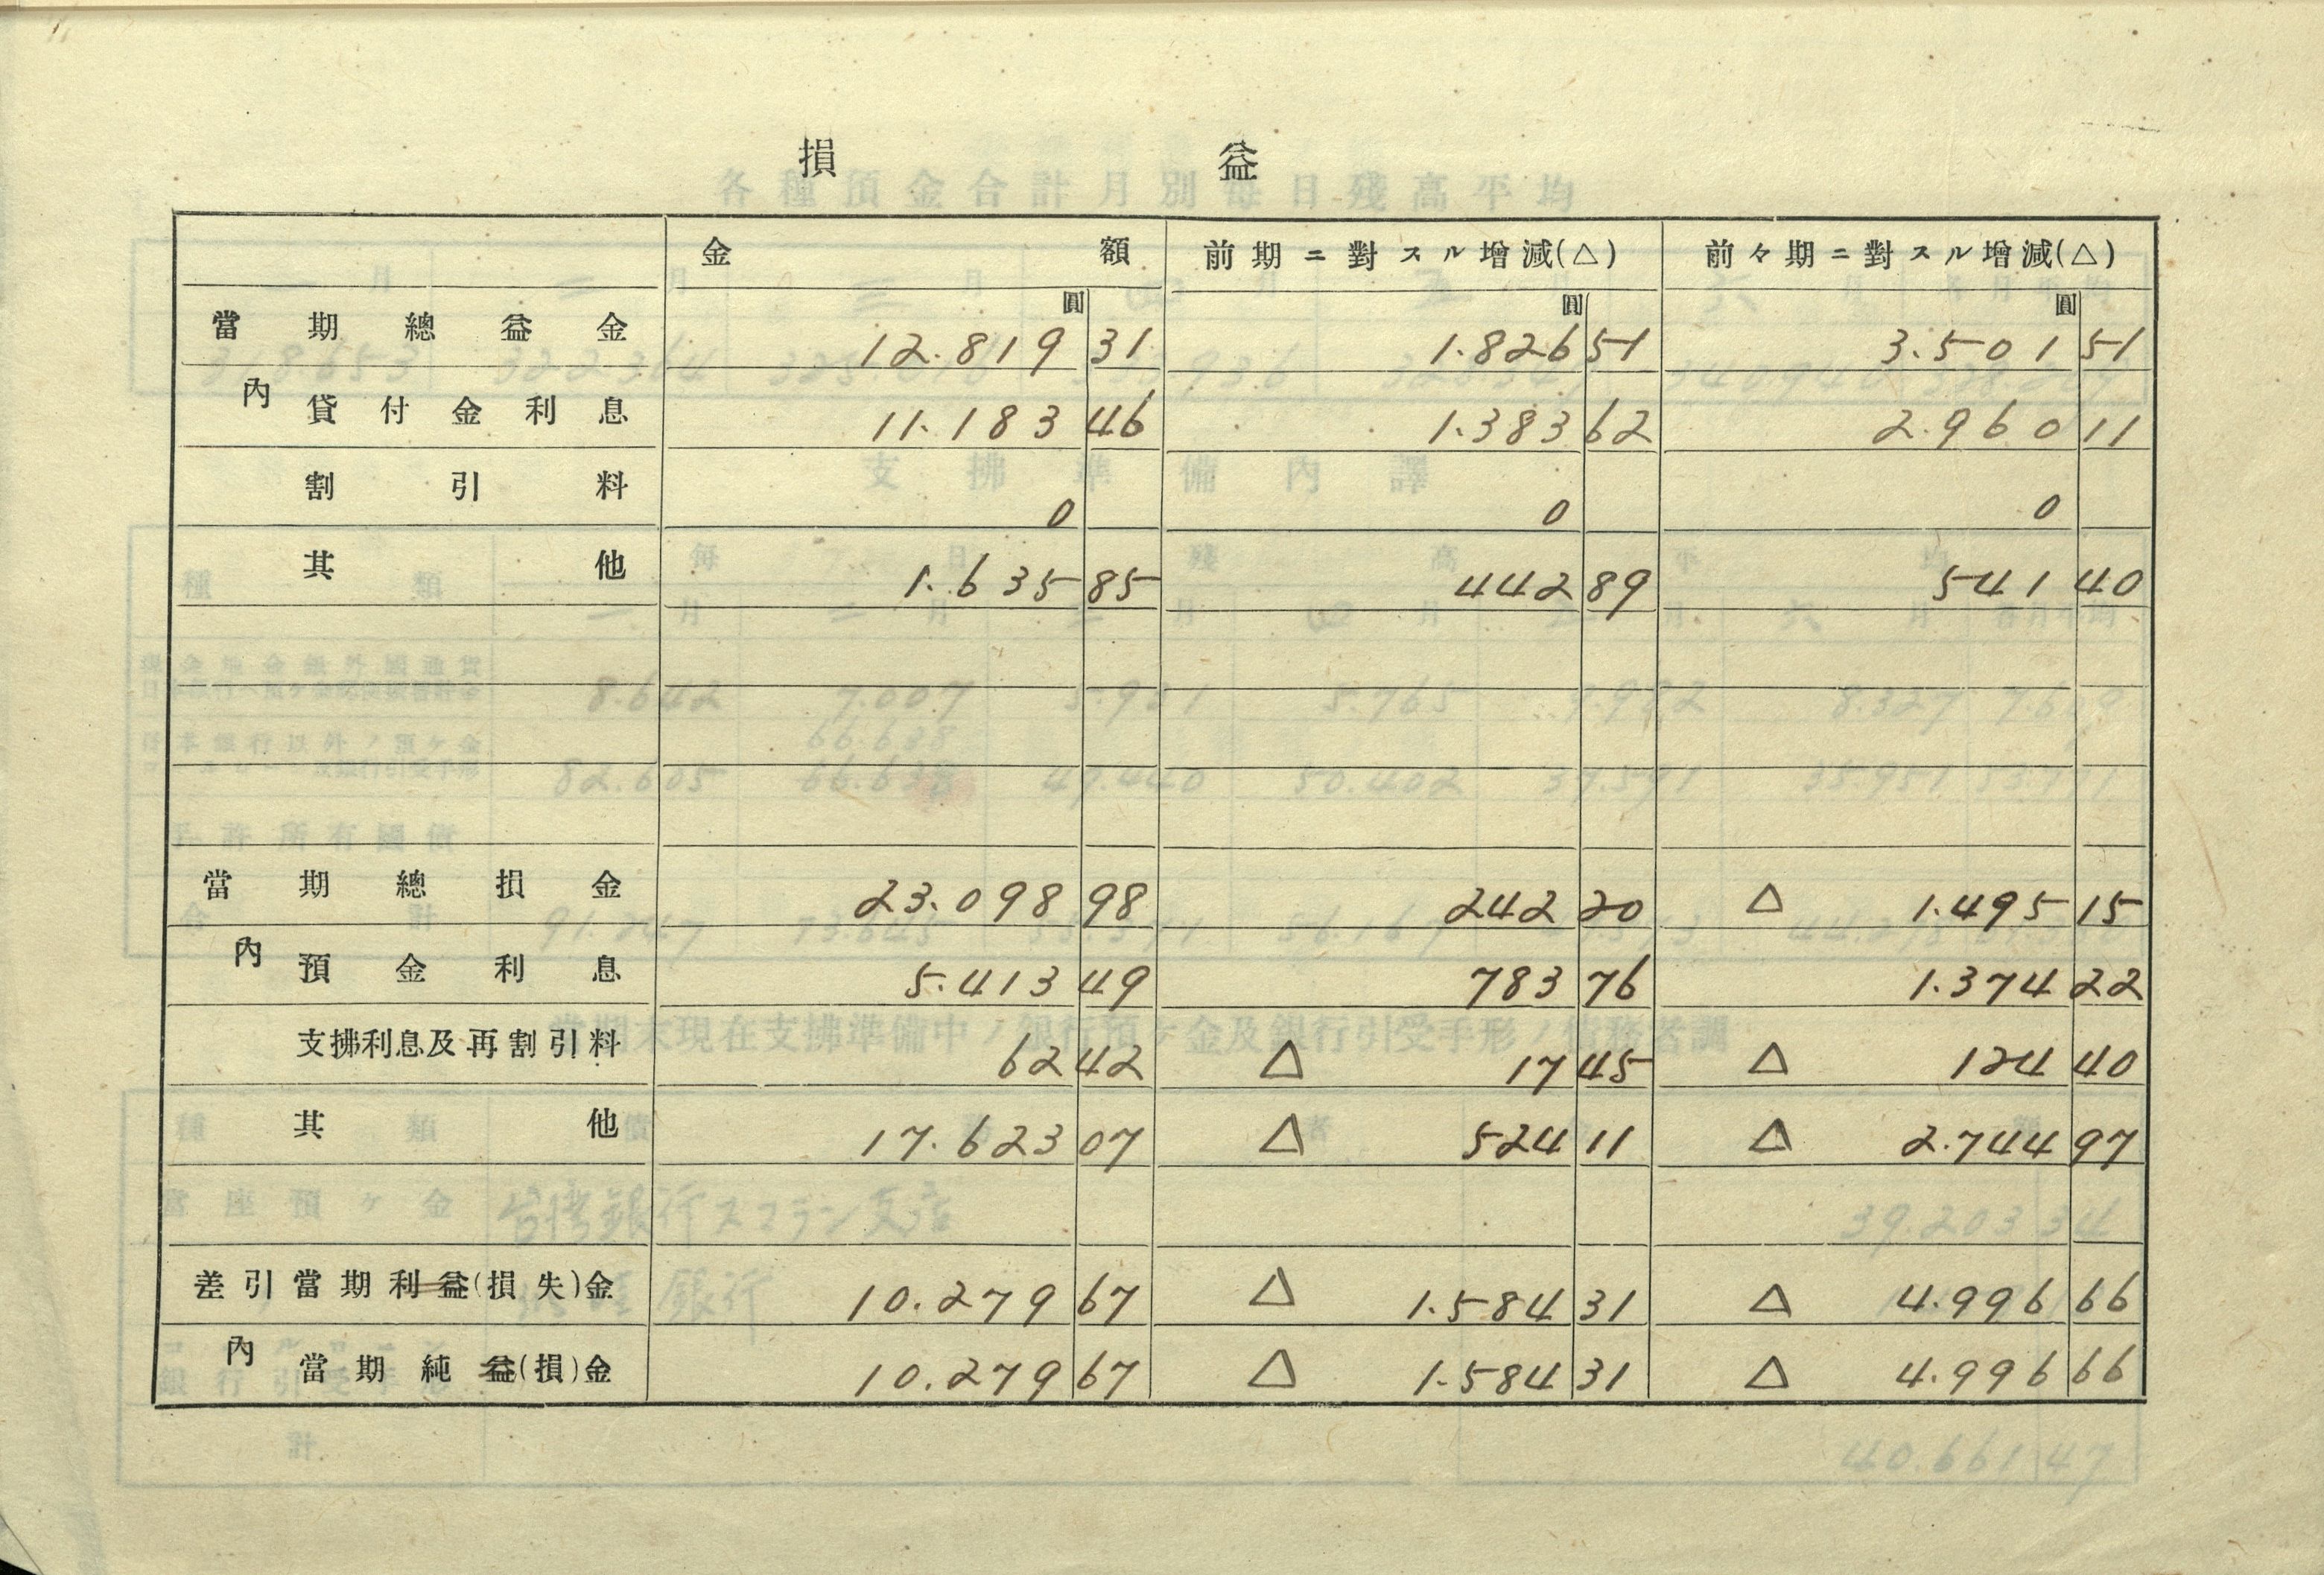 損益
金額 前期ニ對スル增減(△) 前々期ニ對スル增減(△)
圓 圓 圓
當期總益金 12.819 31 1.826 51 3.501 51
內 貸付金利息 11.183 46 1.383 62 2.960 11
割引料 0 0 0
其他 1.635 85 442 89 541 40
當期總損金 23.098 98 242 20 △ 1.495 15
內 預金利息 5.413 49 783 76 1.374 22
支拂利息及再割引料 62 42 △ 17 45 △ 124 40
其他 17.623 07 △ 524 11 △ 2.744 97
差引當期利益(損失)金 10.279 67 △ 1.584 31 △ 4.996 66
內 當期純益(損)金 10.279 67 △ 1.584 31 △ 4.996 66